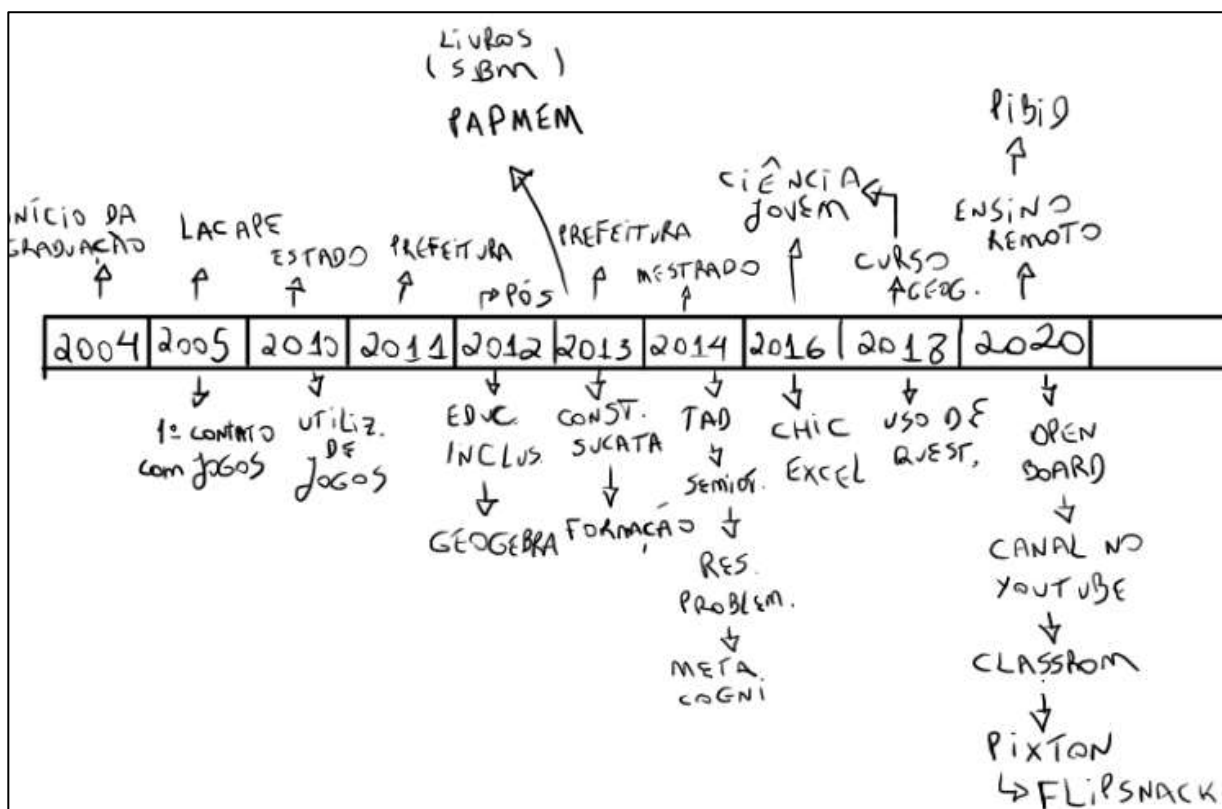 LIVROS
(SBM)
PAPMEM
PIBID
CIÊNCIA
JOVEM
INÍCIO DA
GRADUAÇÃO
LACAPE
ESTADO
PREFEITURA
PÓS
PREFEITURA
MESTRADO
CURSO
GEOG.
ENSINO
REMOTO
2004 2005 2010 2011 2012 2013 2014 2016 2018 2020
1º CONTATO
COM JOGOS
UTILIZ.
DE
JOGOS
EDUC.
INCLUS.
GEOGEBRA
CONST.
SUCATA
FORMAÇÃO
TAD
SEMIÓT.
RES.
PROBLEM.
META
COGNI
CHIC
EXCEL
USO DE
QUEST.
OPEN
BOARD
CANAL NO
YOUTUBE
CLASSROM
PIXTON
FLIPSNACK